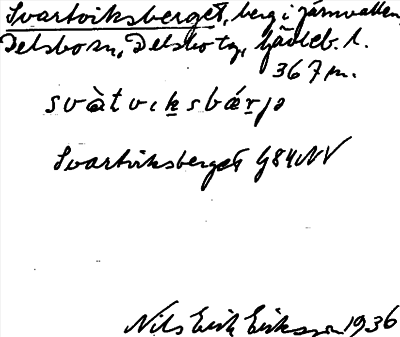 Svartviksberget, berg i Järnvallen,
Delsbo sn, Delsbo tg, Gävleb. l.
367 m.
svàtvıksbǽrjə
Svartviksberget G84NV
Nils Erik Eriksson 1936